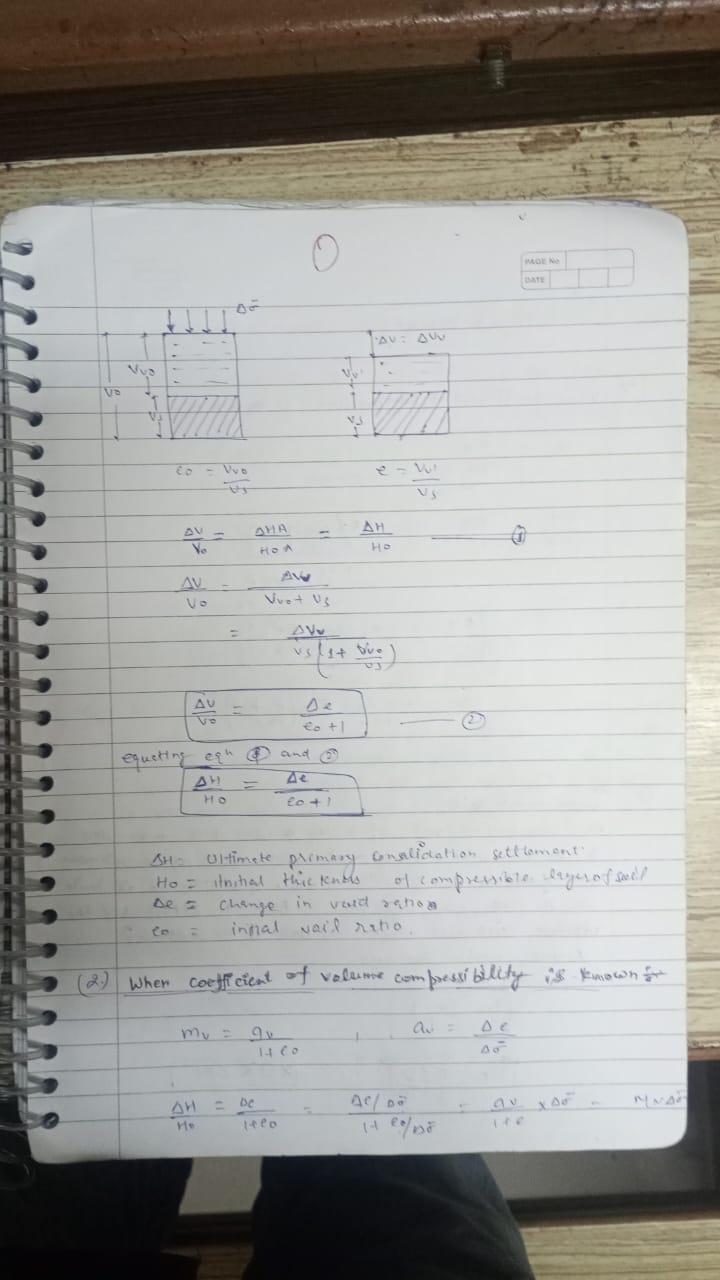 1
PAGE No
DATE
Δσ̄
ΔV = ΔVv
Vvo
Vv1
Vo
Vs
Vs
eo = Vvo/Vs
e = Vv1/Vs
ΔV/Vo = ΔHA/HoA = ΔH/Ho ——— ①
ΔV/Vo = ΔVv/(Vvo + Vs)
= ΔVv/(Vs(1 + Vvo/Vs))
ΔV/Vo = Δe/(eo+1) ——— ②
equeting eqn ① and ②
ΔH/Ho = Δe/(eo+1)
ΔH = Ultimate primary consolidation settlement.
Ho = initial thickness of compressible layer of soil
Δe = change in void ratio
eo = initial void ratio.
(2.) When coefficient of volume compressibility is known :-
mv = av/(1+eo) , av = Δe/Δσ̄
ΔH/Ho = Δe/(1+eo) = (Δe/Δσ̄)/(1+eo/Δσ̄) = av/(1+e) × Δσ̄ = MvΔσ̄